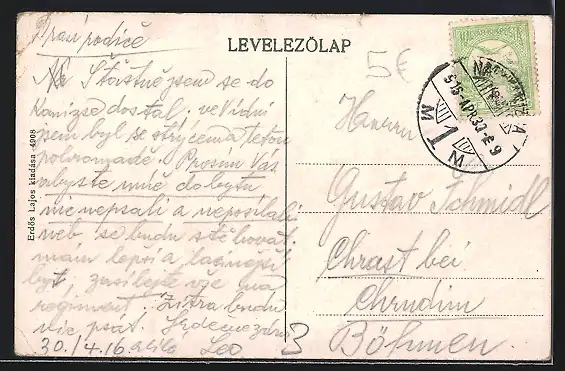 Drazí rodiče
LEVELEZŐLAP
5€
Na Šťastně jsem se do
Kanizse dostal, ve Vídni
jsem byl se strýcem a tetou
pohromadě. Prosím Vás
abyste mně do bytu
nic nepsali a neposílali
neb se budu stěhovat.
mám lepší a lacinější
byt, zasílejte vše na
regiment. Zítra budu
víc psát. Srdečně zdraví
30./4.16 a líbá Leo
3
Erdős Lajos kiadása 4908
Herrn
Gustav Schmidl
Chrast bei
Chrudim
Böhmen.
915 APR 30
M 1 W